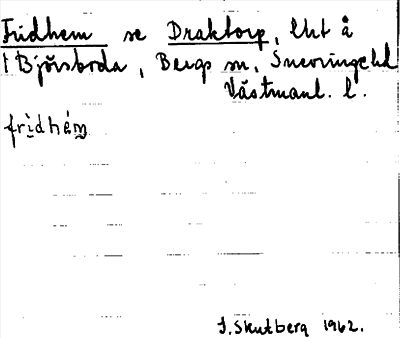 Fridhem se Draktorp, lht å
1 Björsboda, Bergs sn, Snevringe hd
Västmanl. l.
fri̲dhém̲
J. Skutberg 1962.